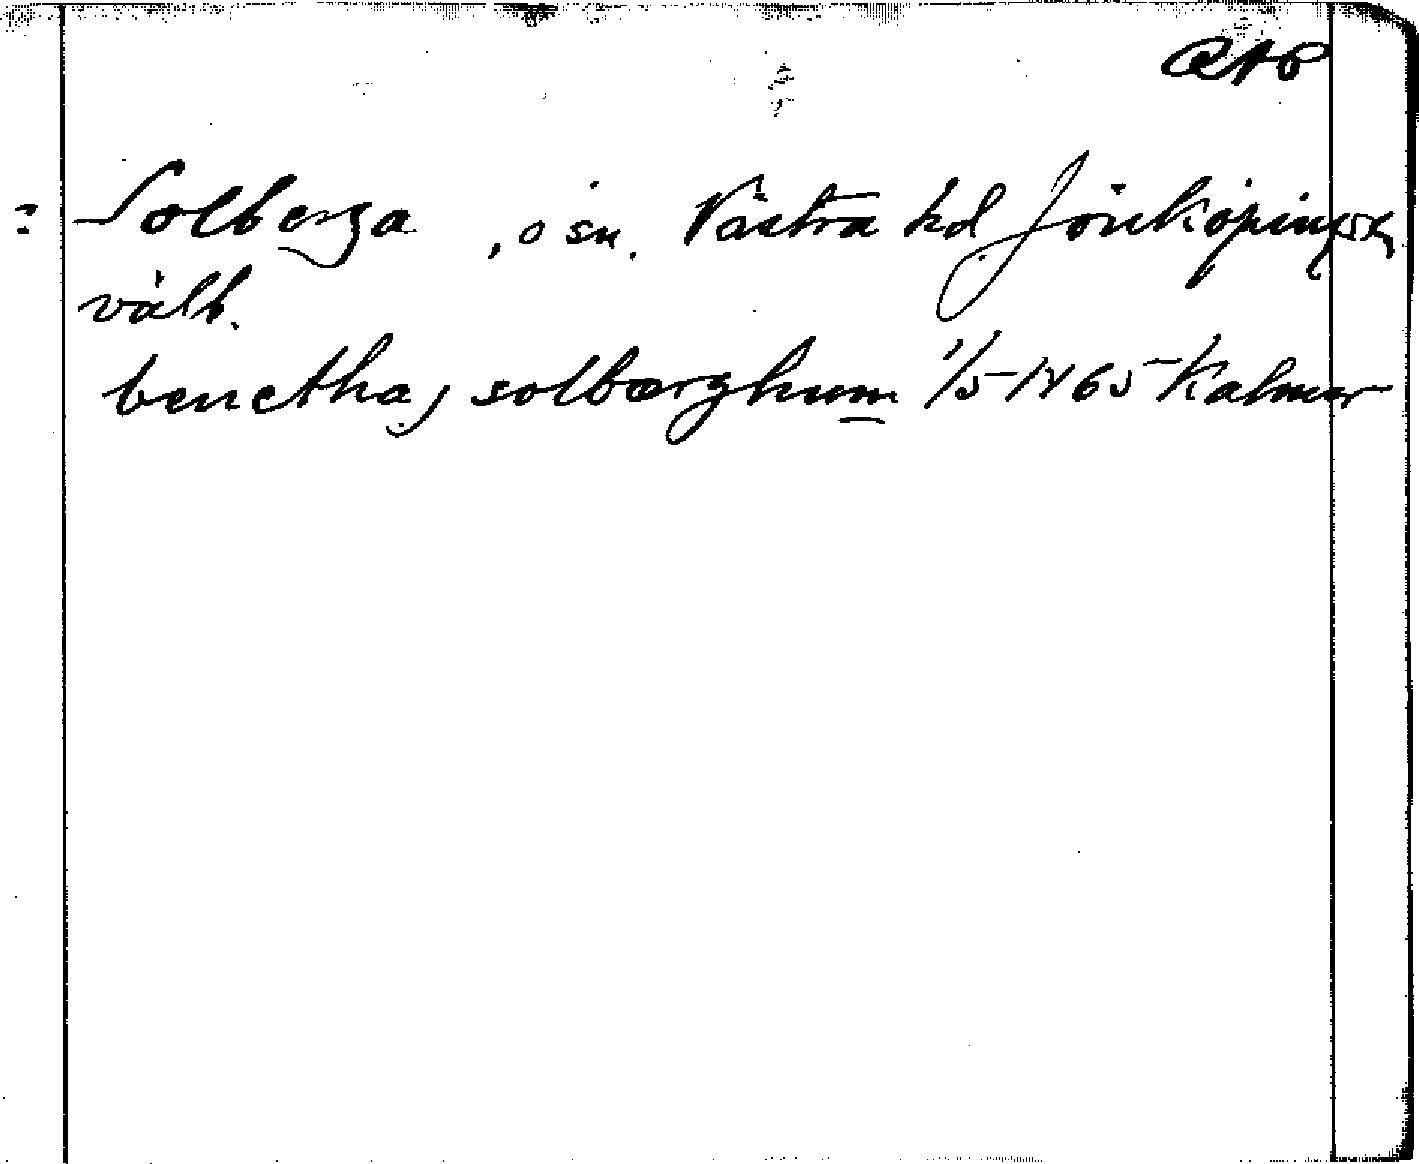 : Solberga , o sn. Västra hd Jönköpings
benetha, solbærghum 1/5 1465 Kalmar